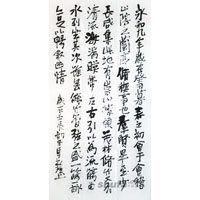 永和九年歲在癸丑暮春之初會于會稽
山陰之蘭亭脩禊事也群賢畢至少
長咸集此地有崇山峻領茂林脩竹又有
清流激湍暎帶左右引以為流觴曲
水列坐其次雖無絲竹管弦之盛一觴一詠
亦足以暢叙幽情